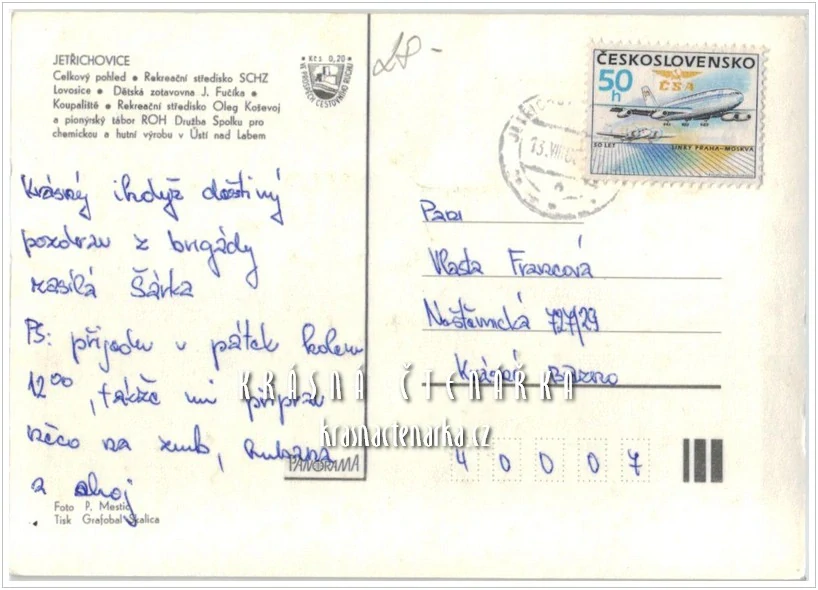 JETŘICHOVICE
Celkový pohled • Rekreační středisko SCHZ
Lovosice • Dětská zotavovna J. Fučíka •
Koupaliště • Rekreační středisko Oleg Koševoj
a pionýrský tábor ROH Družba Spolku pro
chemickou a hutní výrobu v Ústí nad Labem
Kčs 0,20
VE PROSPĚCH CESTOVNÍHO RUCHU
ČESKOSLOVENSKO
50h
ČSA
50 LET LINKY PRAHA-MOSKVA
13.VIII
Krásný ikdyž deštivý
pozdrav z brigády
zasílá Šárka
PS: přijedu v pátek kolem
12⁰⁰, takže mi připrav
něco na zub,
a ahoj
Paní
Vlasta Francová
Neštěmická 727/29
Krásné Březno
40007
KRÁSNÁ ČTENÁŘKA
krasnactenarka.cz
PANORAMA
Foto P. Mestic
Tisk Grafobal Skalica